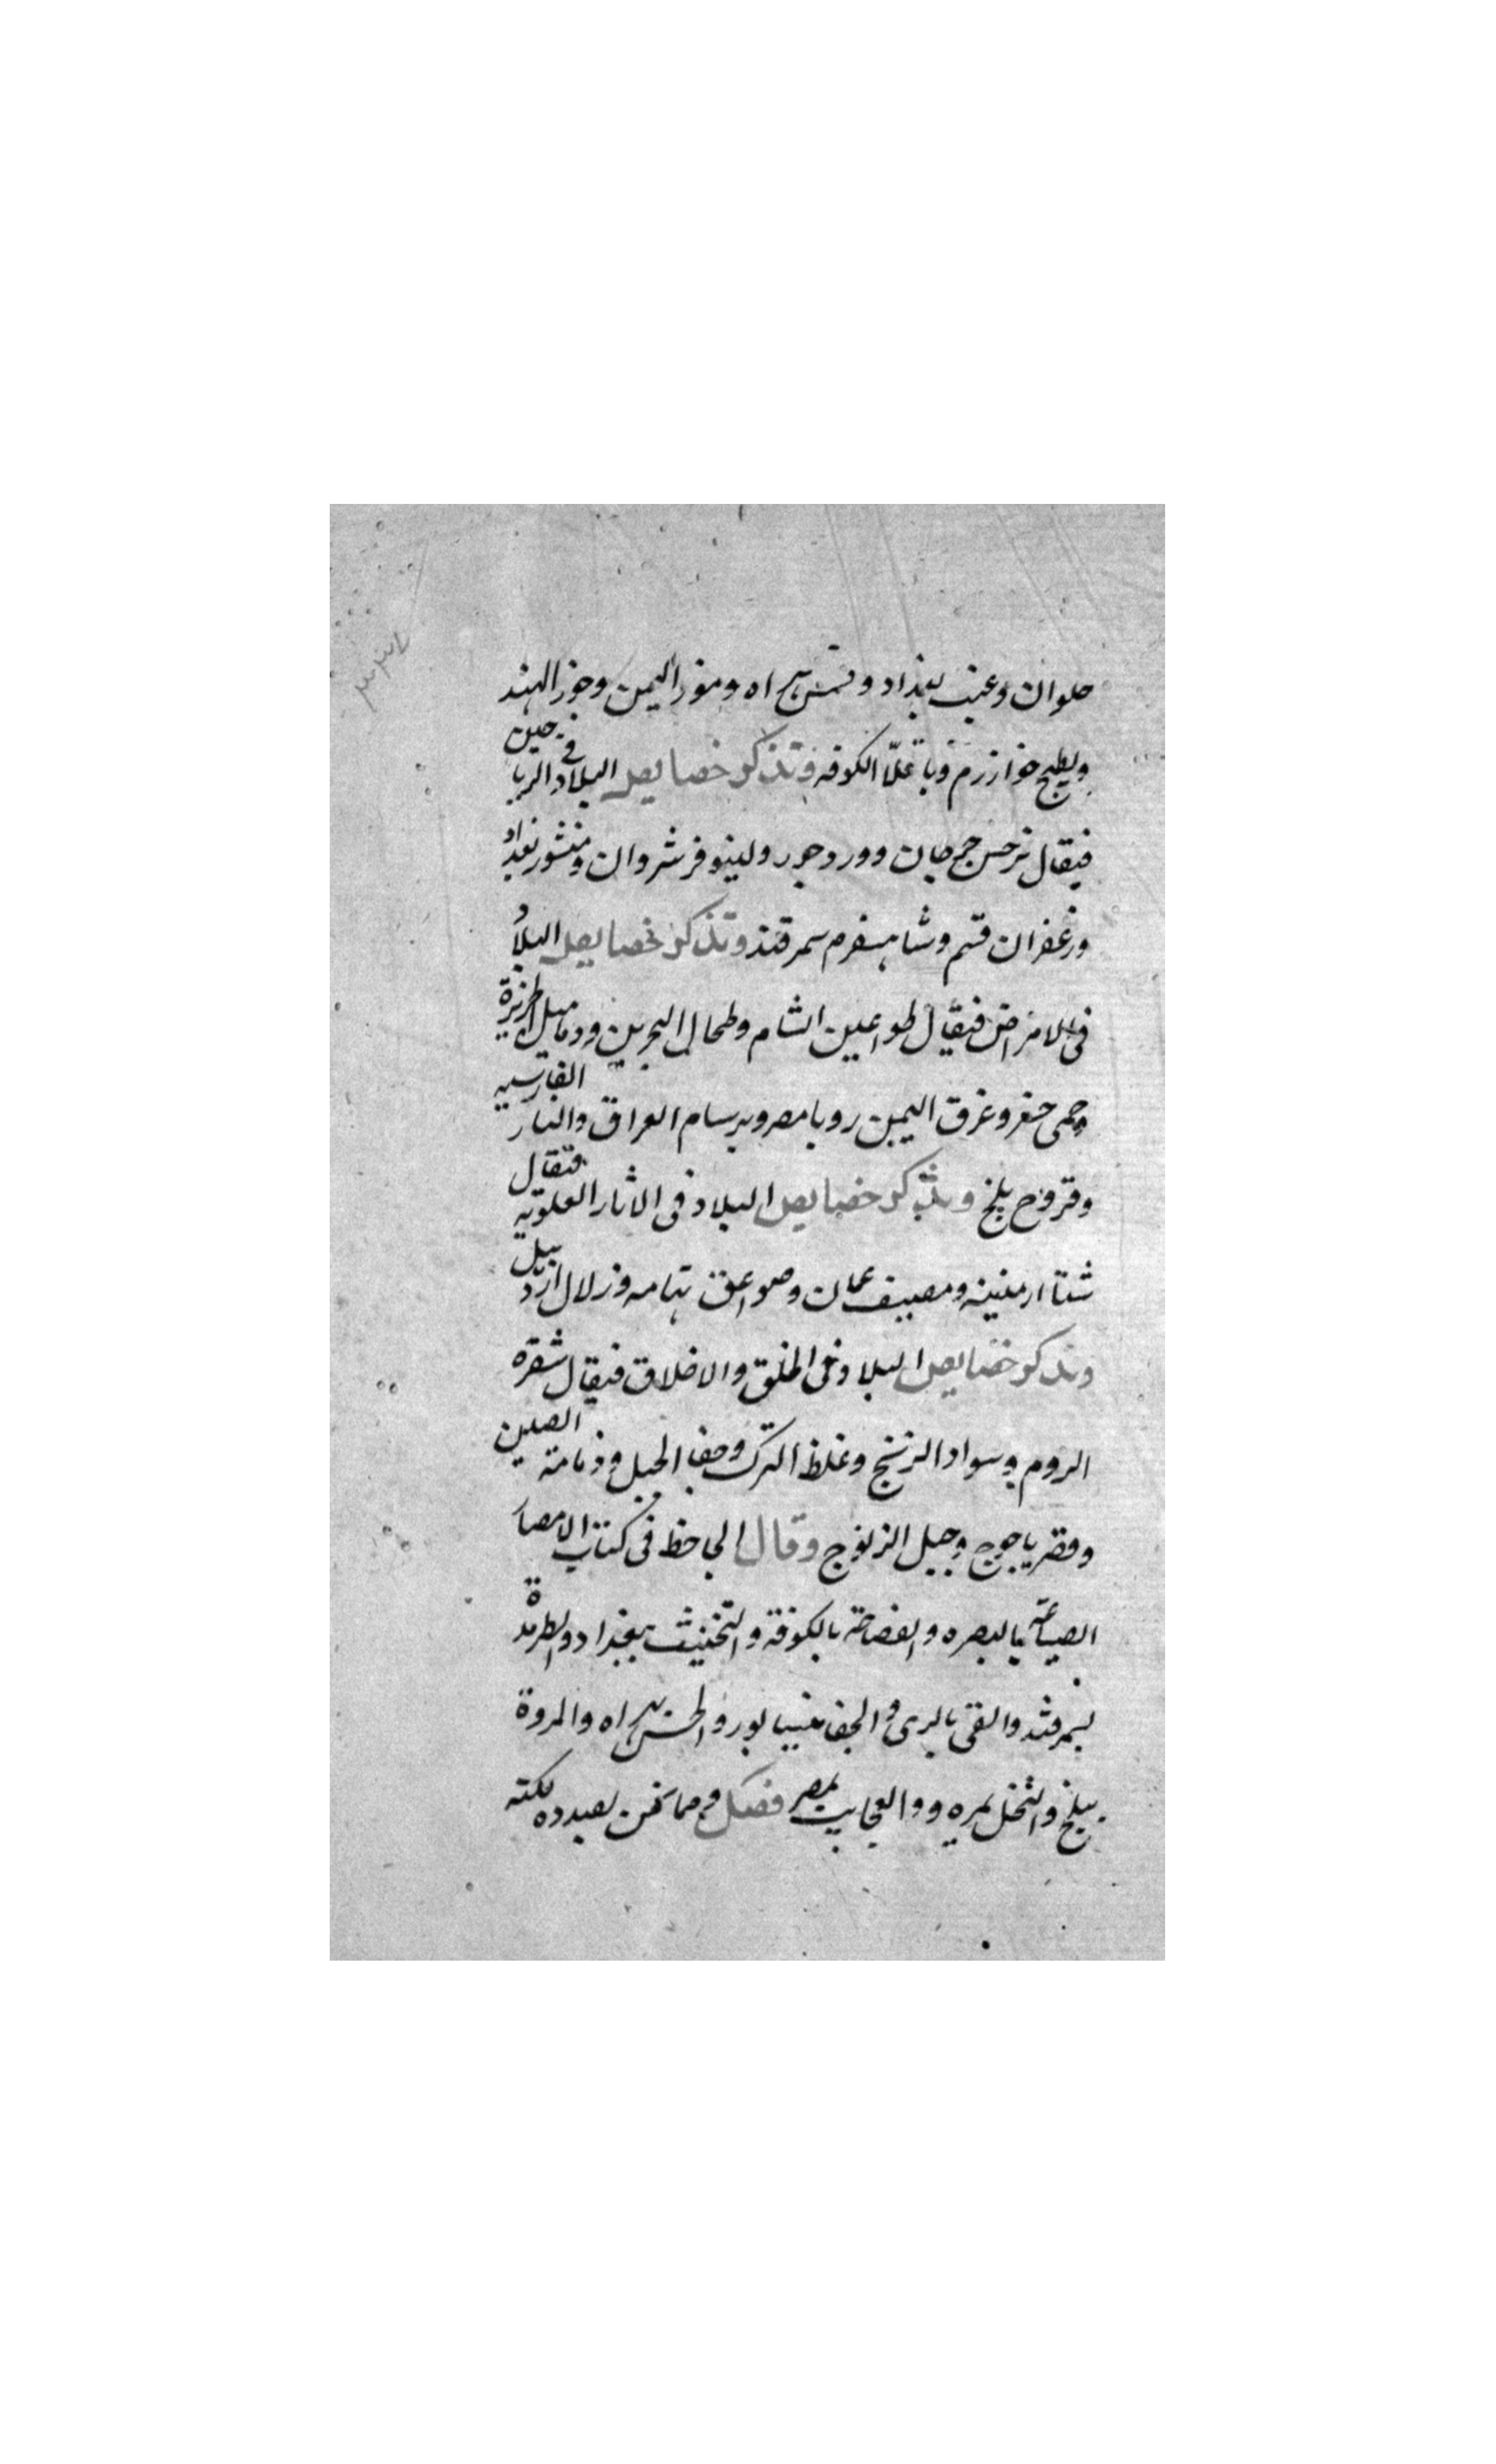 حلوان وعنب بغداد وقشمش هراه وموز اليمن وجوز الهند
وبطيخ خوارزم وباقلا الكوفه وتذكر خصايص البلاد في الرياحين
فيقال نرجس جرجان وورد جور ولينوفر شروان ومنثور بغداد
وزعفران قم وشاهسفرم سمرقند وتذكر خصايص البلاد
في الامراض فيقال طواعين الشام وطحال البحرين ودماميل الجزيرة
وحمى خيبر وعرق اليمن روبا مصر وبرسام العراق والنار الفارسيه
وقروح بلخ وتذكر خصايص البلاد في الاثار العلويه فيقال
شتا ارمنيه ومصيف عمان وصواعق تهامه وزلازل اردبيل
وتذكر خصايص البلاد في الخلق والاخلاق فيقال شقره
الروم وسواد الزنج وغلظ الترك وجفا الجبل ودمامة الصين
وقصر ياجوج وجبل الزنوج وقال الجاحظ في كتاب الامصار
الصياعة بالبصره والفصاحة بالكوفة والتخنيث ببغداد والطرمذة
بسمرقند والقى بالرى والجفا بنيسابور والحسن بهراه والمروة
ببلخ والبخل بمرو والعجايب بمصر فصل ومما نحن بصدده نكته